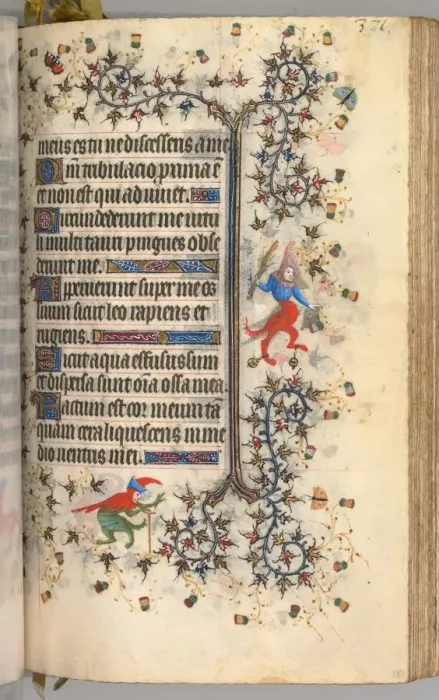 meus es tu ne discesseris a me
Qm̄ tribulacio proxima ē
et non est qui adiuuet.
Circundederunt me uitu
li multi tauri pingues obse
derunt me.
Aperuerunt super me os
suum sicut leo rapiens et
rugiens.
Sicut aqua effusus sum
et dispersa sunt oīa ossa mea.
Factum est cor meum tā
quam cera liquescens in me
dio uentris mei.